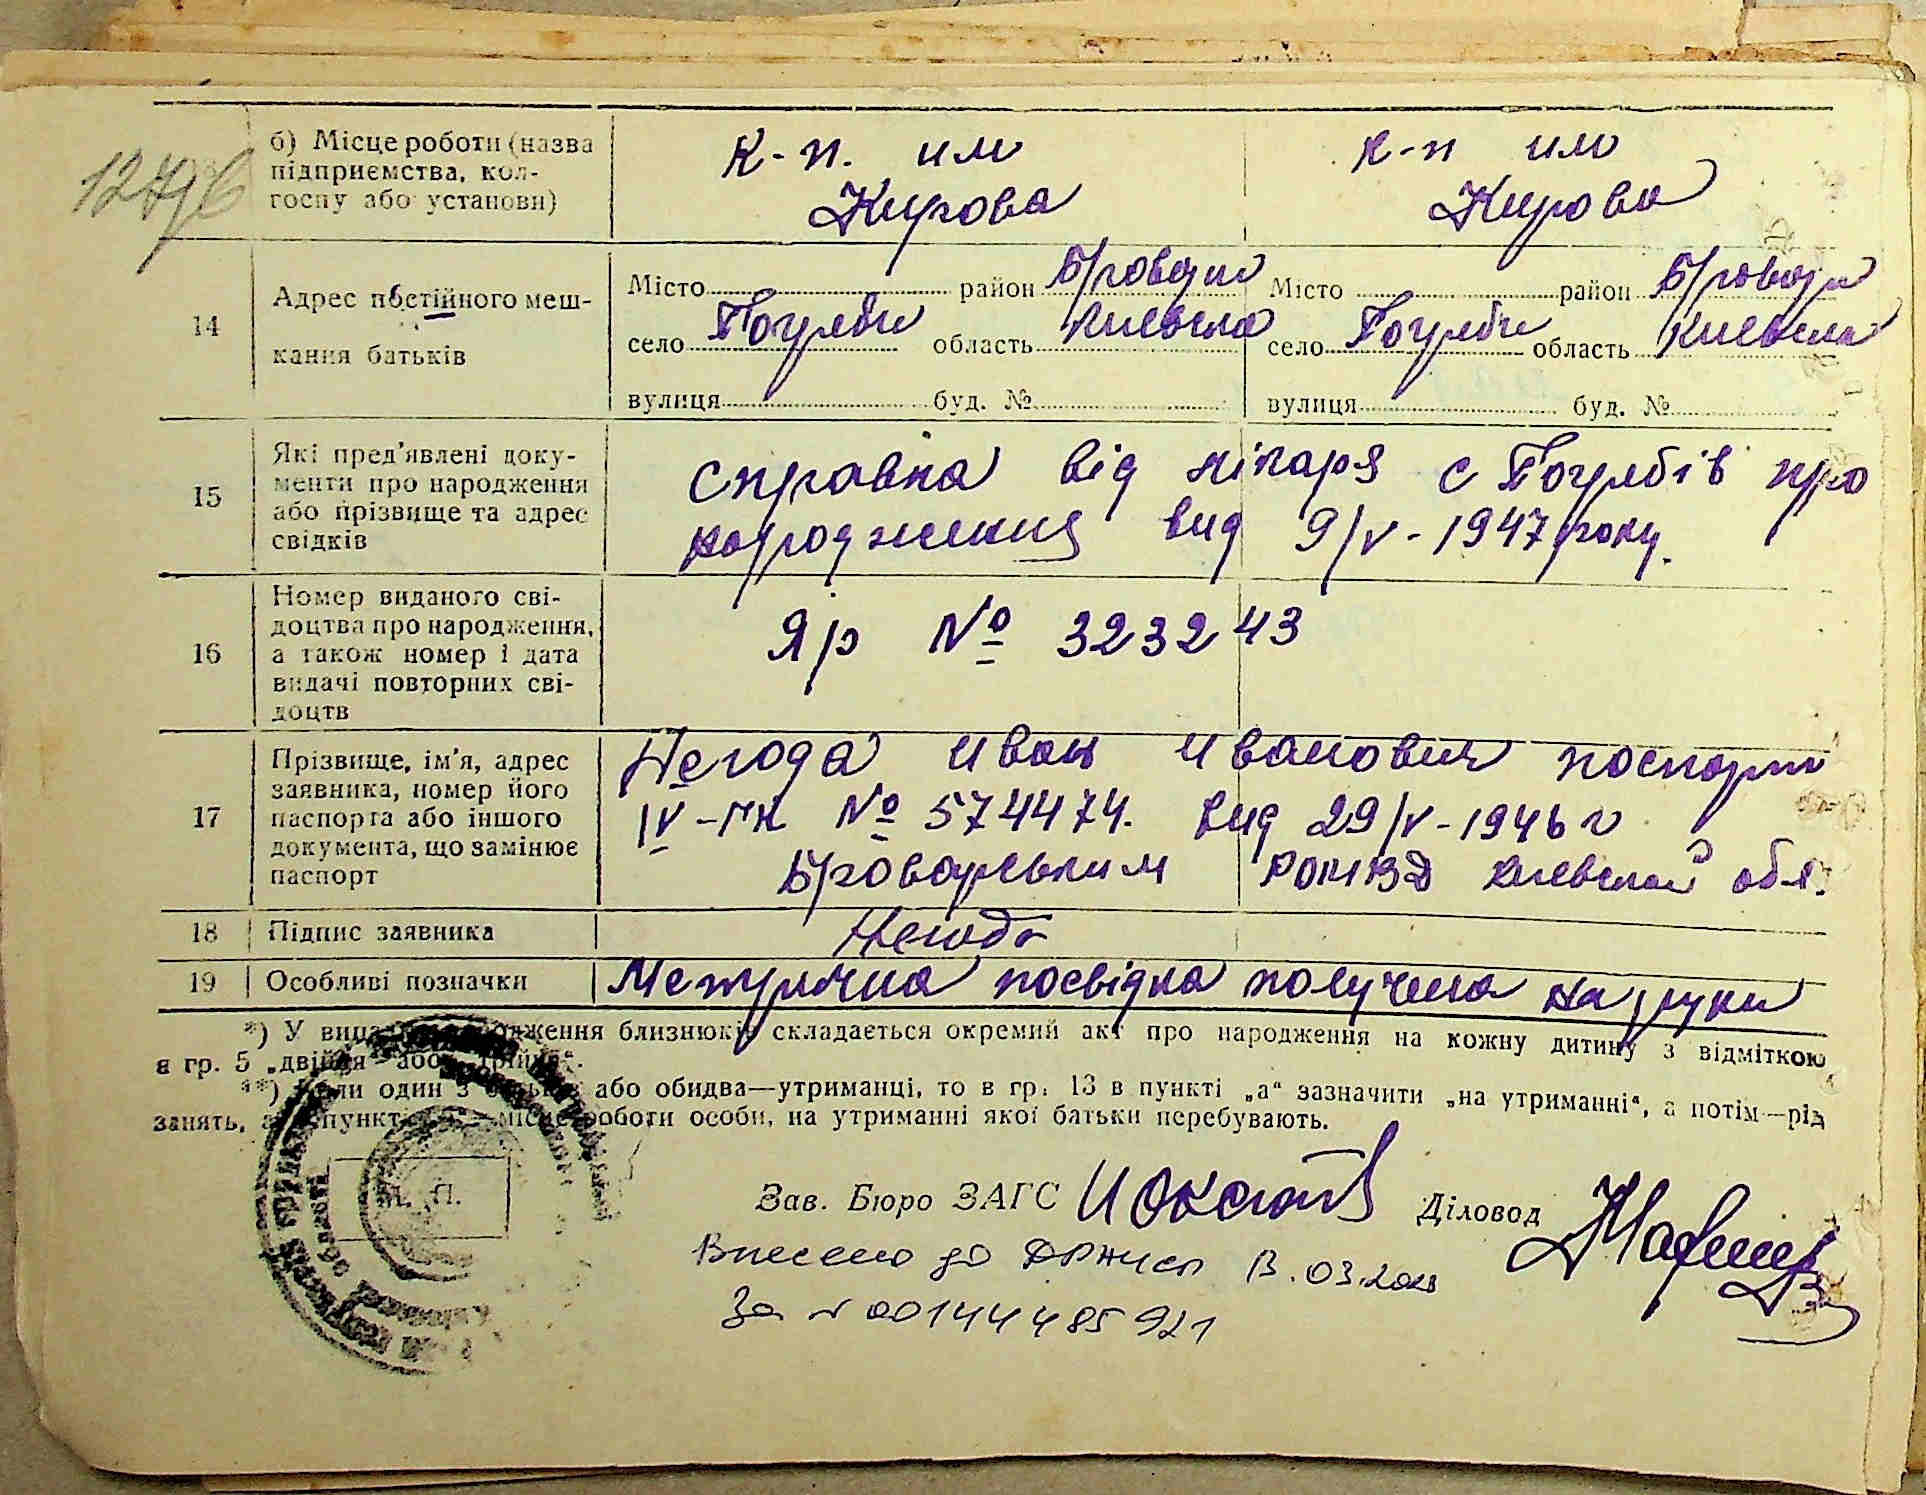 12496
б) Місце роботи (назва підприємства, кол-
госпу або установи)
К-п. им Кирова
К-п им Кирова
14
Адрес постійного меш-
кання батьків
Місто район Бровары
село Погребы область Киевска
вулиця буд. №
Місто район Бровары
село Погребы область Киевска
вулиця буд. №
15
Які пред'явлені доку-
менти про народження
або прізвище та адрес
свідків
справка від лікаря с Погребів про
народження вид 9/V-1947 року.
16
Номер виданого сві-
доцтва про народження,
а також номер і дата
видачі повторних сві-
доцтв
Яр № 323243
17
Прізвище, ім'я, адрес
заявника, номер його
паспорта або іншого
документа, що замінює
паспорт
Негода Иван Иванович паспорт
IV-ГК № 574474. вид 29/V-1946 г
Броварським РОМВД Киевской обл.
18
Підпис заявника
Негода
19
Особливі позначки
Метрична посвідка получена на руки
*) У випадку народження близнюків складається окремий акт про народження на кожну дитину з відміткою
в гр. 5 „двійня“ або „трійня“.
**) Коли один з батьків або обидва—утриманці, то в гр. 13 в пункті „а“ зазначити „на утриманні“, а потім—рід
занять, а в пункті місце роботи особи, на утриманні якої батьки перебувають.
М. П.
Зав. Бюро ЗАГС
Діловод
Внесено до ДРАЦСГ 13.03.2023
За № 00144485921